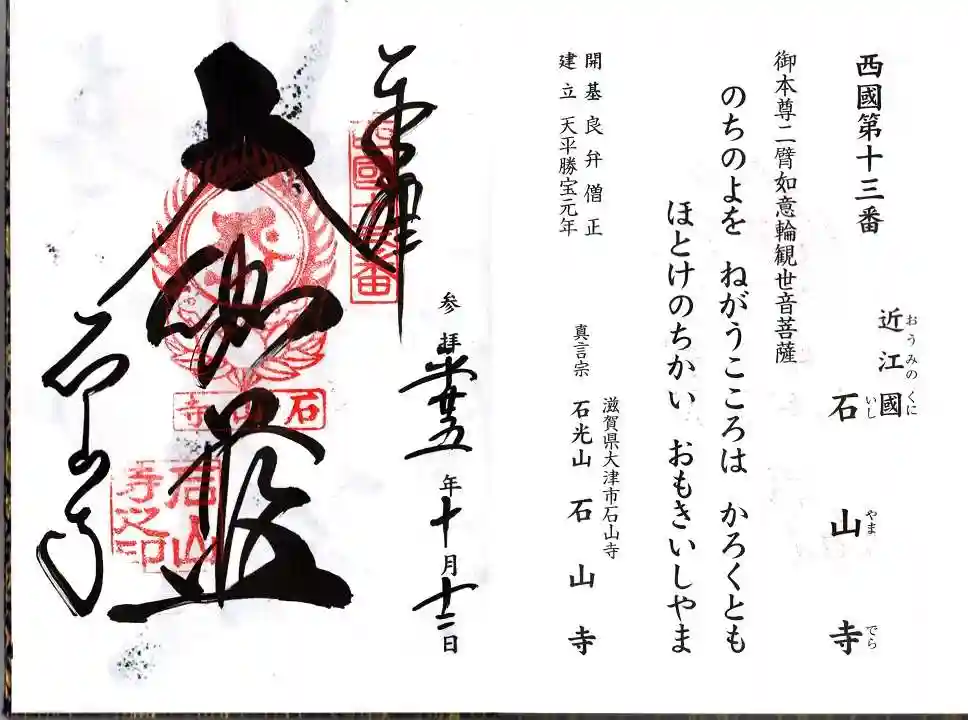 西國第十三番
近江國
おうみの くに
石山寺
いし やま でら
御本尊二臂如意輪観世音菩薩
のちのよを ねがうこころは かろくとも
ほとけのちかい おもきいしやま
開基 良弁僧正
建立 天平勝宝元年
滋賀県大津市石山寺
真言宗 石光山 石山寺
参拝 廿五年十月十二日
奉拝
西國十三番
大伽藍
石山寺
石山寺
石山寺之印